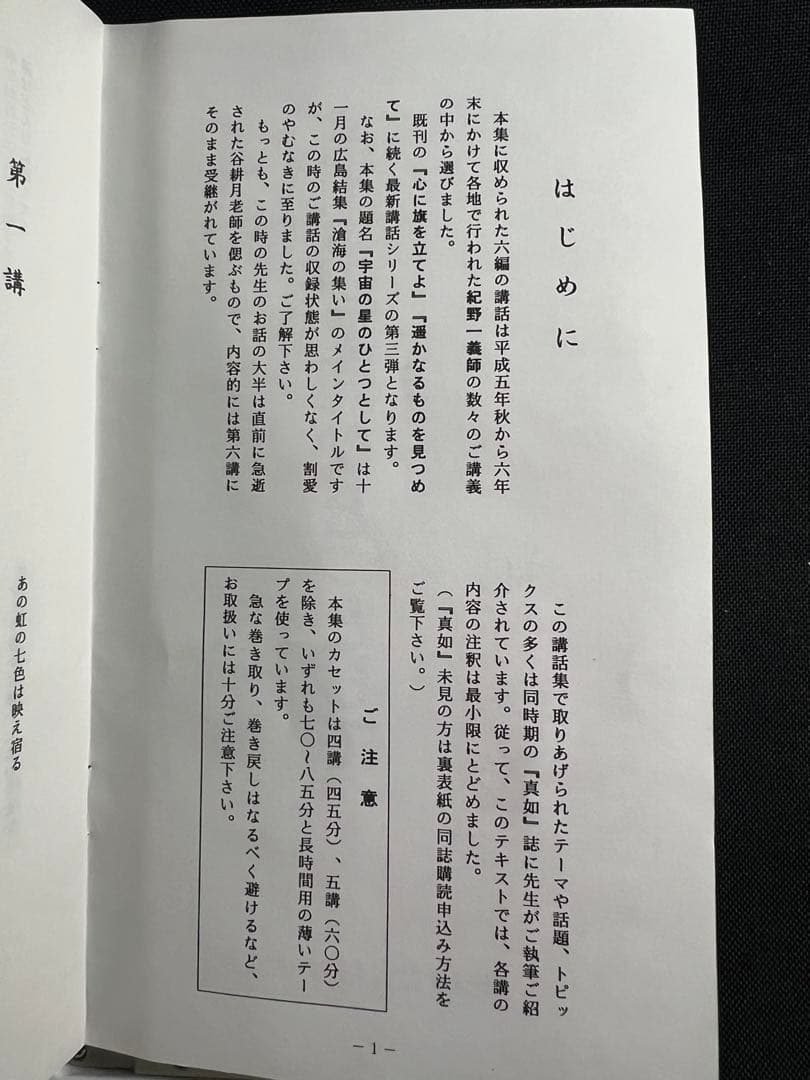 はじめに
本集に収められた六編の講話は平成五年秋から六年
末にかけて各地で行われた紀野一義師の数々のご講義
の中から選びました。
既刊の『心に旗を立てよ』『遥かなるものを見つめ
て』に続く最新講話シリーズの第三弾となります。
なお、本集の題名『宇宙の星のひとつとして』は十
一月の広島結集『滄海の集い』のメインタイトルです
が、この時のご講話の収録状態が思わしくなく、割愛
のやむなきに至りました。ご了解下さい。
もっとも、この時の先生のお話の大半は直前に急逝
された谷耕月老師を偲ぶもので、内容的には第六講に
そのまま受継がれています。
この講話集で取りあげられたテーマや話題、トピッ
クスの多くは同時期の『真如』誌に先生がご執筆ご紹
介されています。従って、このテキストでは、各講の
内容の注釈は最小限にとどめました。
(『真如』未見の方は裏表紙の同誌購読申込み方法を
ご覧下さい。)
ご注意
本集のカセットは四講(四五分)、五講(六〇分)
を除き、いずれも七〇~八五分と長時間用の薄いテー
プを使っています。
急な巻き取り、巻き戻しはなるべく避けるなど、
お取扱いには十分ご注意下さい。
—1—
第一講
あの虹の七色は映え宿る